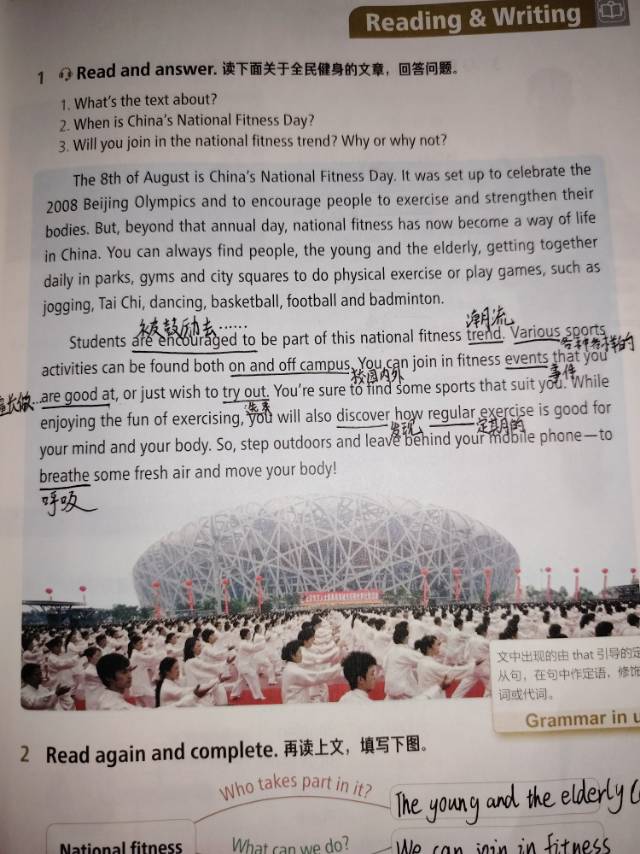 Reading & Writing
1 Read and answer. 读下面关于全民健身的文章，回答问题。
1. What's the text about?
2. When is China's National Fitness Day?
3. Will you join in the national fitness trend? Why or why not?
The 8th of August is China's National Fitness Day. It was set up to celebrate the
2008 Beijing Olympics and to encourage people to exercise and strengthen their
bodies. But, beyond that annual day, national fitness has now become a way of life
in China. You can always find people, the young and the elderly, getting together
daily in parks, gyms and city squares to do physical exercise or play games, such as
jogging, Tai Chi, dancing, basketball, football and badminton.
被鼓励去…… 潮流
Students are encouraged to be part of this national fitness trend. Various sports
各种各样的
activities can be found both on and off campus. You can join in fitness events that you
校园内外 事件
擅长做 ...are good at, or just wish to try out. You're sure to find some sports that suit you. While
enjoying the fun of exercising, you will also discover how regular exercise is good for
发现 定期的
your mind and your body. So, step outdoors and leave behind your mobile phone—to
breathe some fresh air and move your body!
呼吸
文中出现的由 that 引导的定
从句，在句中作定语，修饰
词或代词。
Grammar in u
2 Read again and complete. 再读上文，填写下图。
Who takes part in it?
The young and the elderly
National fitness
What can we do?
We can join in fitness